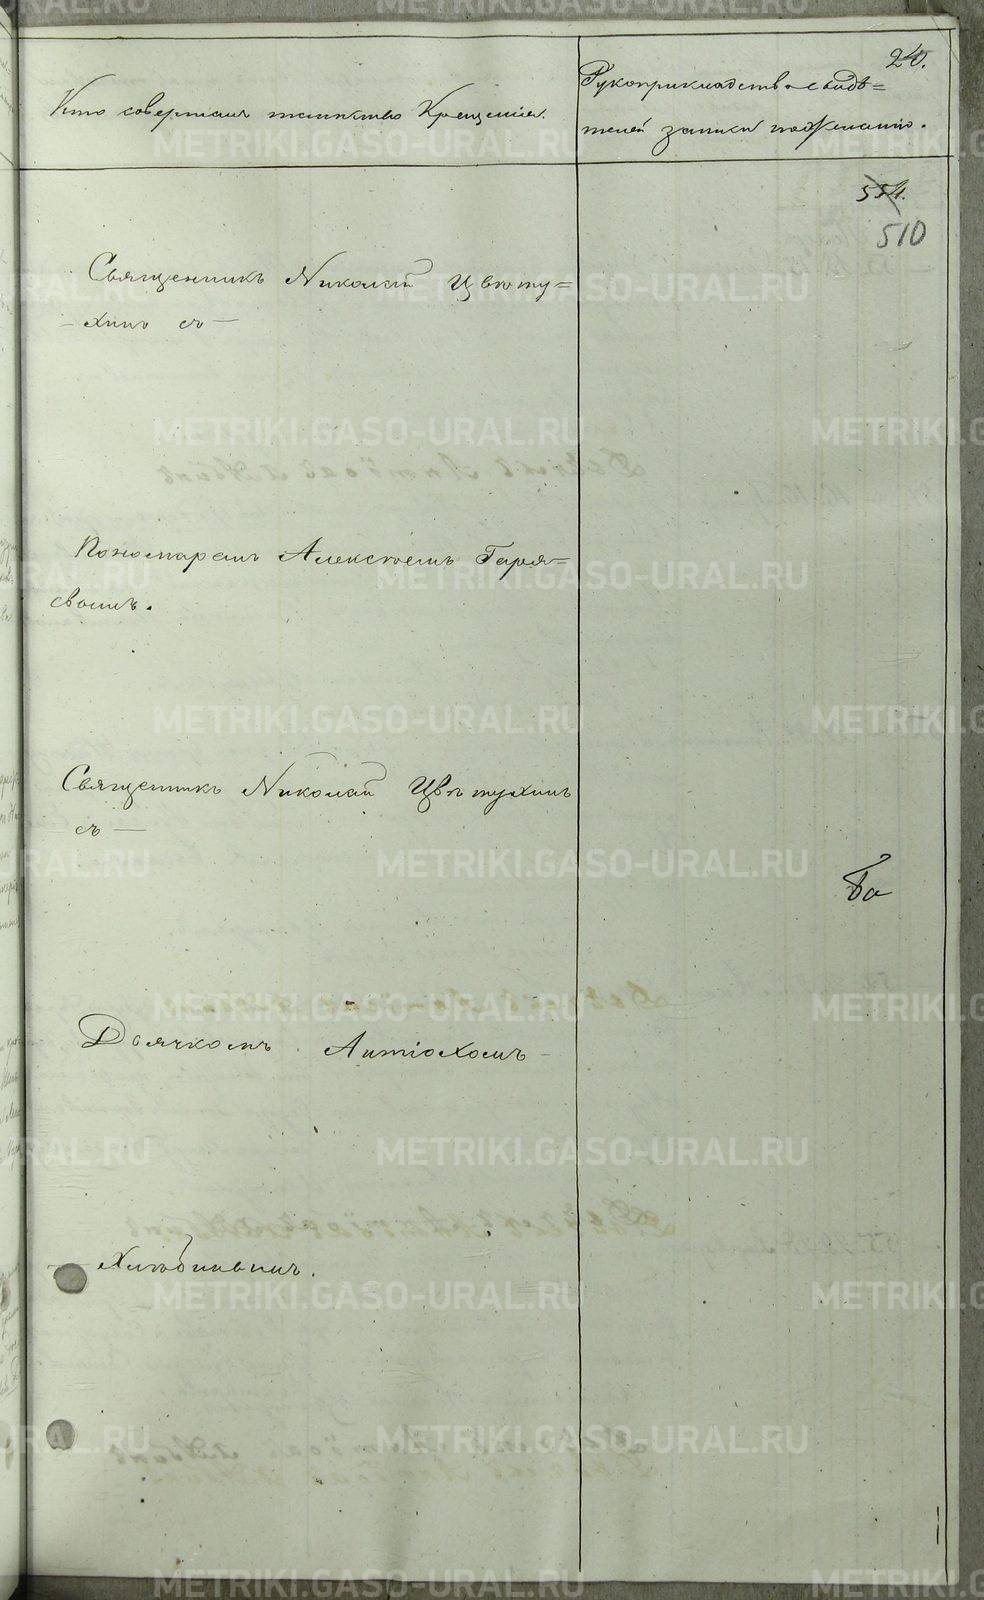 20.
Кто совершалъ таинство Крещенія.
Рукоприкладство свидѣ=
телей записи по желанію.
554.
510
Священникъ Николай Цвѣту=
- хинъ съ -
Пономаремъ Алексѣемъ Гаря=
евымъ.
Священникъ Николай Цвѣтухинъ
съ -
Дьячкомъ Антіохомъ -
- Хлѣбинымъ.
METRIKI.GASO-URAL.RU